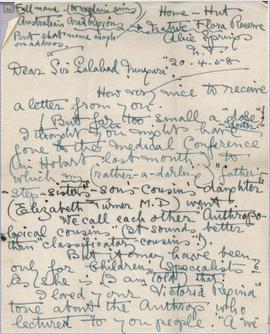 Full name (to explain aims
Australia's Arid Regions
But that name enough
on address.
Home - Hut
Native Flora Reserve
Alice Springs
N.T.
20.4.58
Dear Sir
How very nice to receive
a letter from you.
(But far too small a dose
I thought you might have
gone to the Medical Conference
(in Hobart last month) to
which my (rather-a-darling) father
step-sister's son's cousin's daughter
(Elizabeth Turner M.D) went
We call each other Anthropo-
logical cousins. (It sounds better
than classificatory cousins!)
But it may have been
only for Children's Specialists
as she is I am told that
I loved your Victoria
tone about the Anthrop. who
lectured to you people. "A